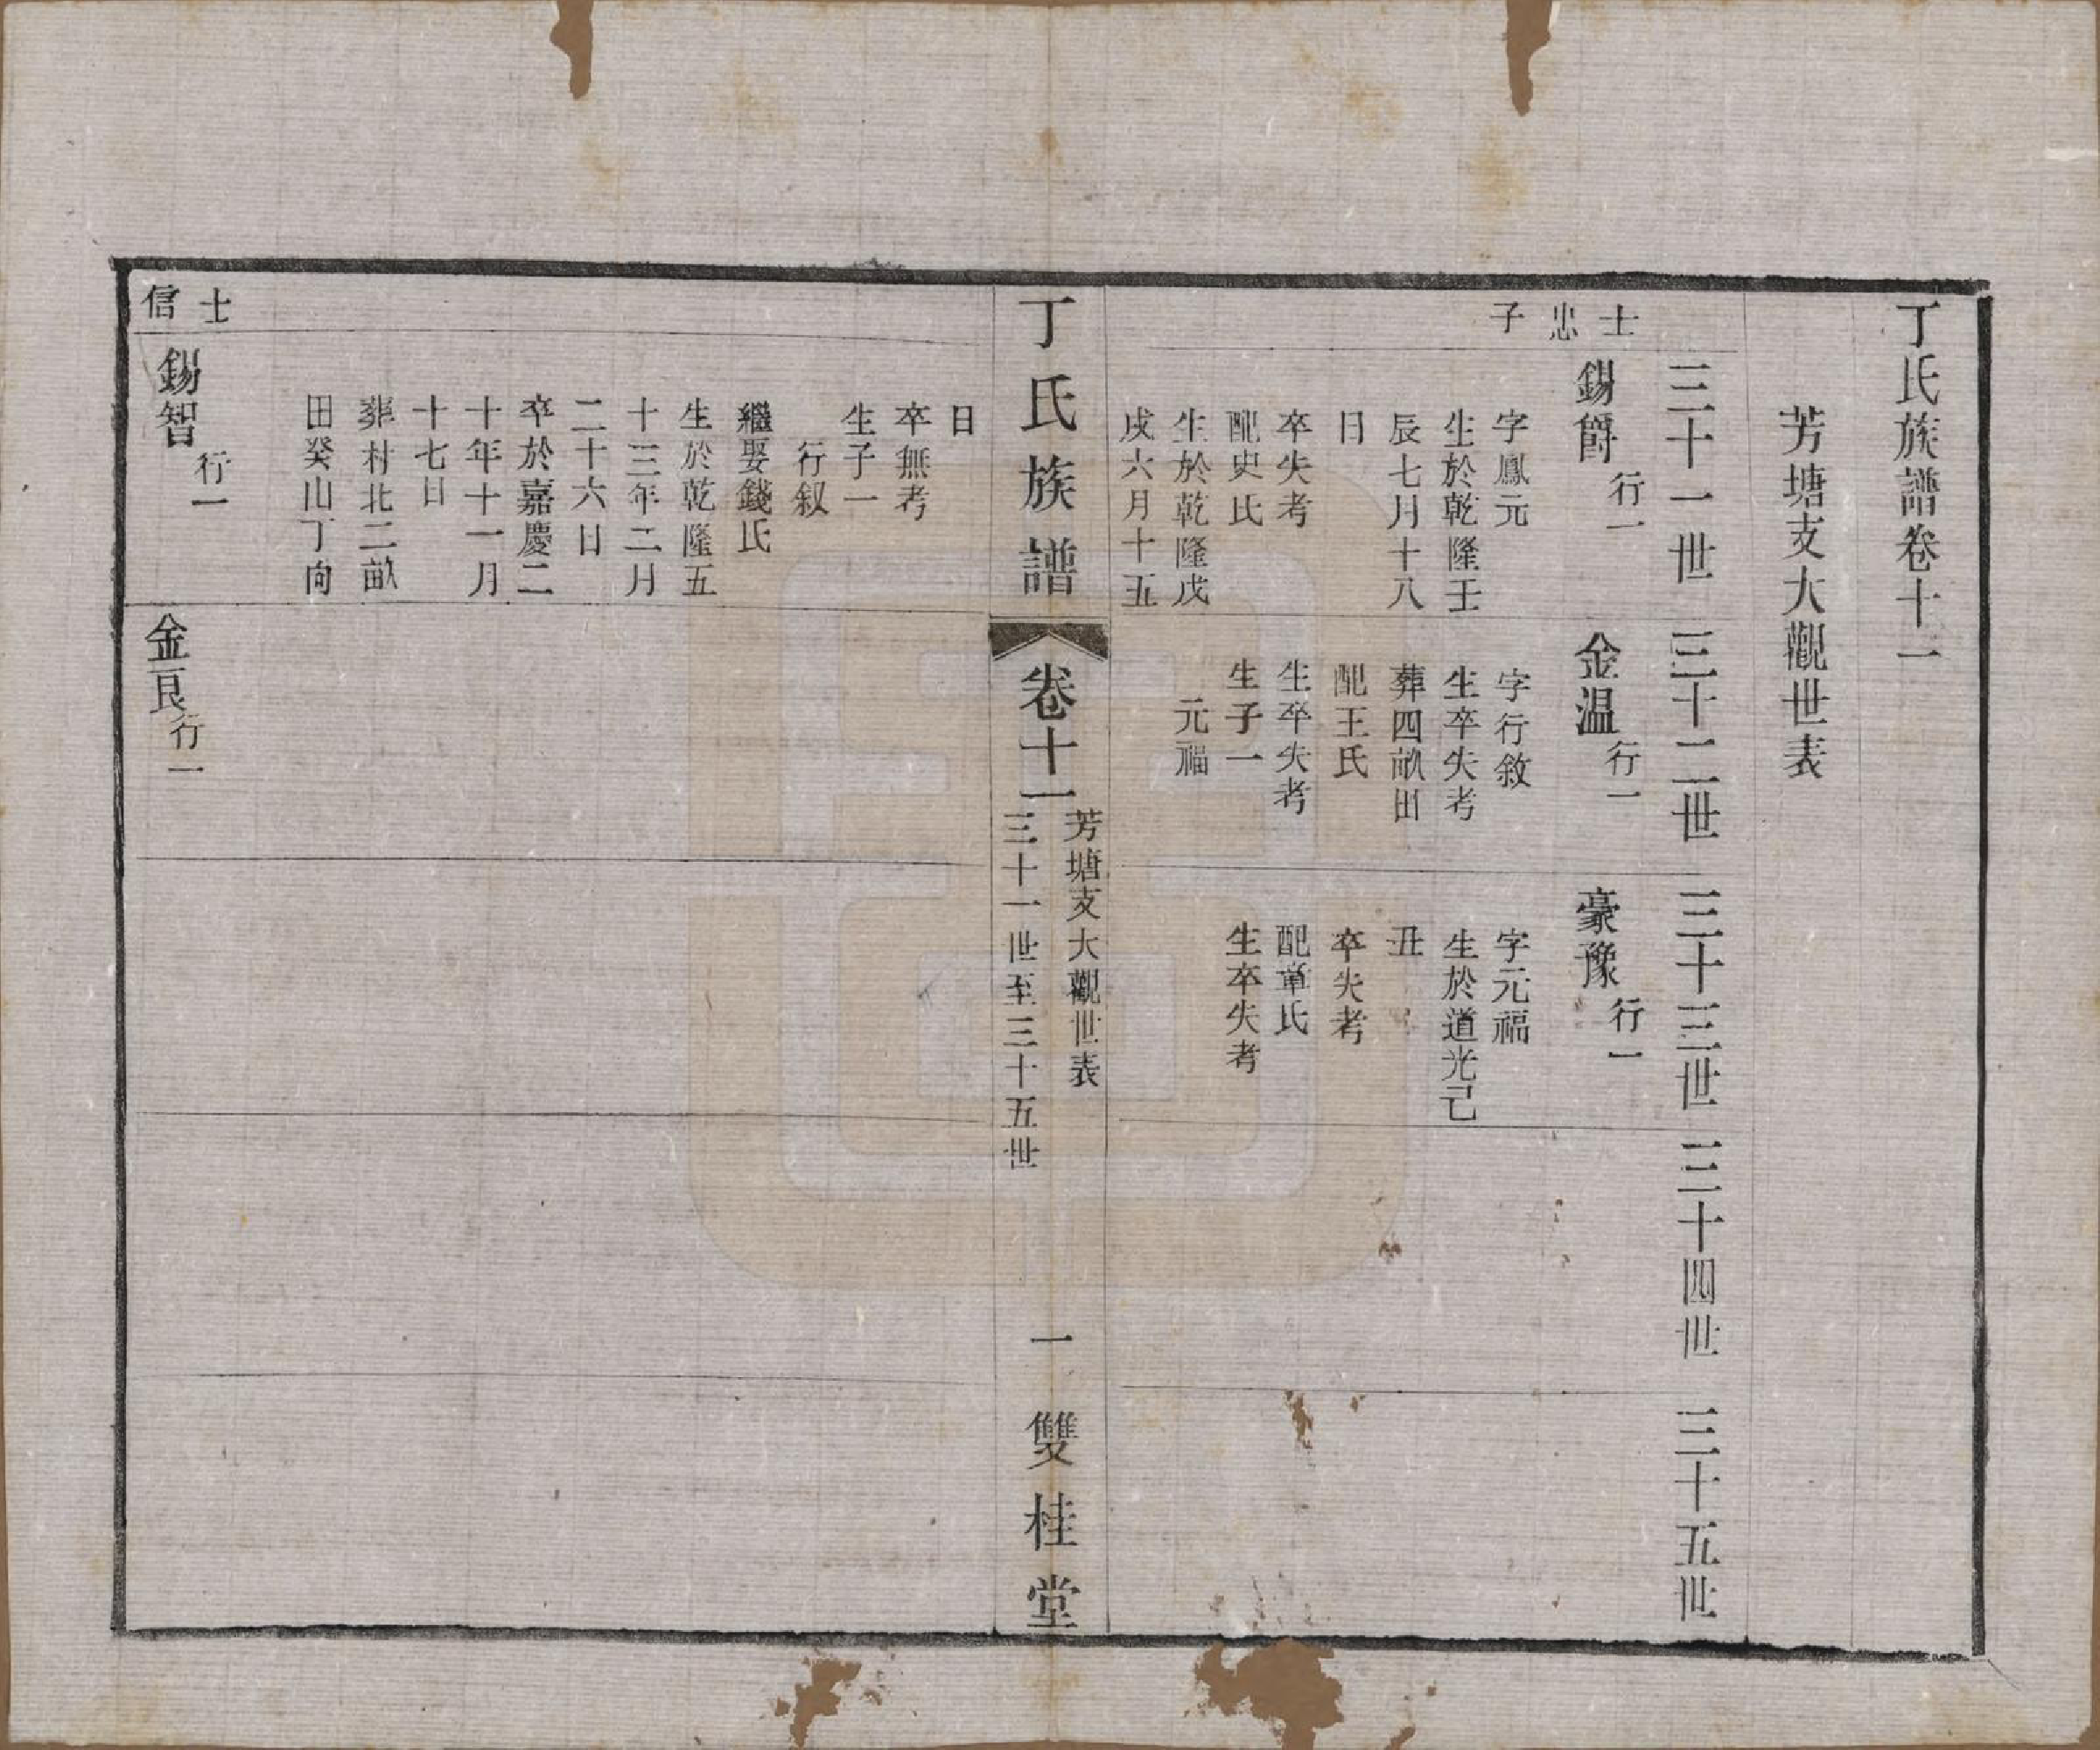 丁氏族譜卷十一
芳塘支大觀世表
三十一世
三十二世
三十三世
三十四世
三十五世
士忠子
錫爵行一
字鳳元
生於乾隆壬
辰七月十八
日
卒失考
配史氏
生於乾隆戊
戌六月十五
金温行一
字行敘
生卒失考
葬四畝田
配王氏
生卒失考
生子一
元福
豪豫行一
字元福
生於道光己
丑
卒失考
配章氏
生卒失考
丁氏族譜
卷十一
芳塘支大觀世表
三十一世至三十五世
一
雙桂堂
日
卒無考
生子一
行叙
繼娶錢氏
生於乾隆五
十三年二月
二十六日
卒於嘉慶二
十年十一月
十七日
葬村北二畝
田癸山丁向
士信
錫智行一
金艮行一